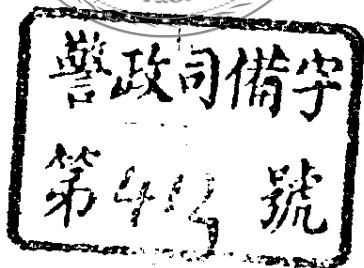 警政司備字
第 號